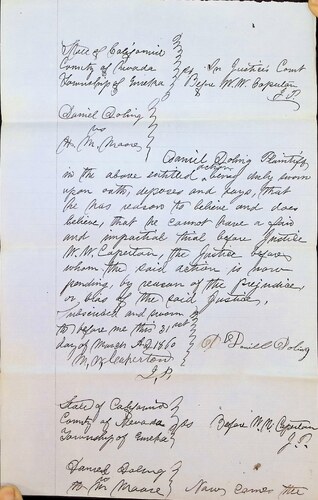 State of California
County of Nevada ss In Justice's Court
Township of Eureka Before W. W. Caperton
J. P.
Daniel Doling
vs
W. M. Moore
Daniel Doling Plaintiff
in the above entitled action being duly sworn
upon oath, deposes and says, that
he has reason to believe and does
believe, that he cannot have a fair
and impartial trial before Justice
W. W. Caperton, the Justice before
whom the said action is now
pending, by reason of the prejudice
or bias of the said Justice,
subscribed and sworn
to before me this 31
day of March A.D. 1860 Daniel Doling
W. W. Caperton
J. P.
State of California
County of Nevada ss Before W. W. Caperton
Township of Eureka J. P.
Daniel Doling
vs
W. M. Moore Now comes the